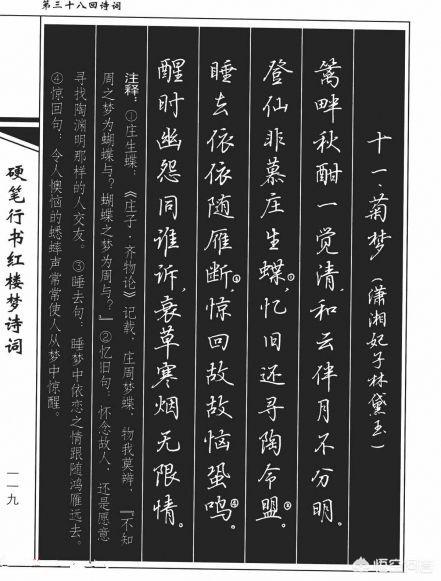 第三十八回诗词
十一、菊梦（潇湘妃子林黛玉）
篱畔秋酣一觉清，和云伴月不分明。
登仙非慕庄生蝶①，忆旧还寻陶令盟②。
睡去依依随雁断③，惊回故故恼蛩鸣④。
醒时幽怨同谁诉，衰草寒烟无限情。
注释：①庄生蝶：《庄子·齐物论》记载，庄周梦蝶，物我莫辨，『不知
周之梦为蝴蝶与？蝴蝶之梦为周与？』②忆旧句：怀念故人，还是愿意
寻找陶渊明那样的人交友。③睡去句：睡梦中依恋之情跟随鸿雁远去。
④惊回句：令人懊恼的蟋蟀声常常使人从梦中惊醒。
硬笔行书红楼梦诗词
一一九
悟空问答